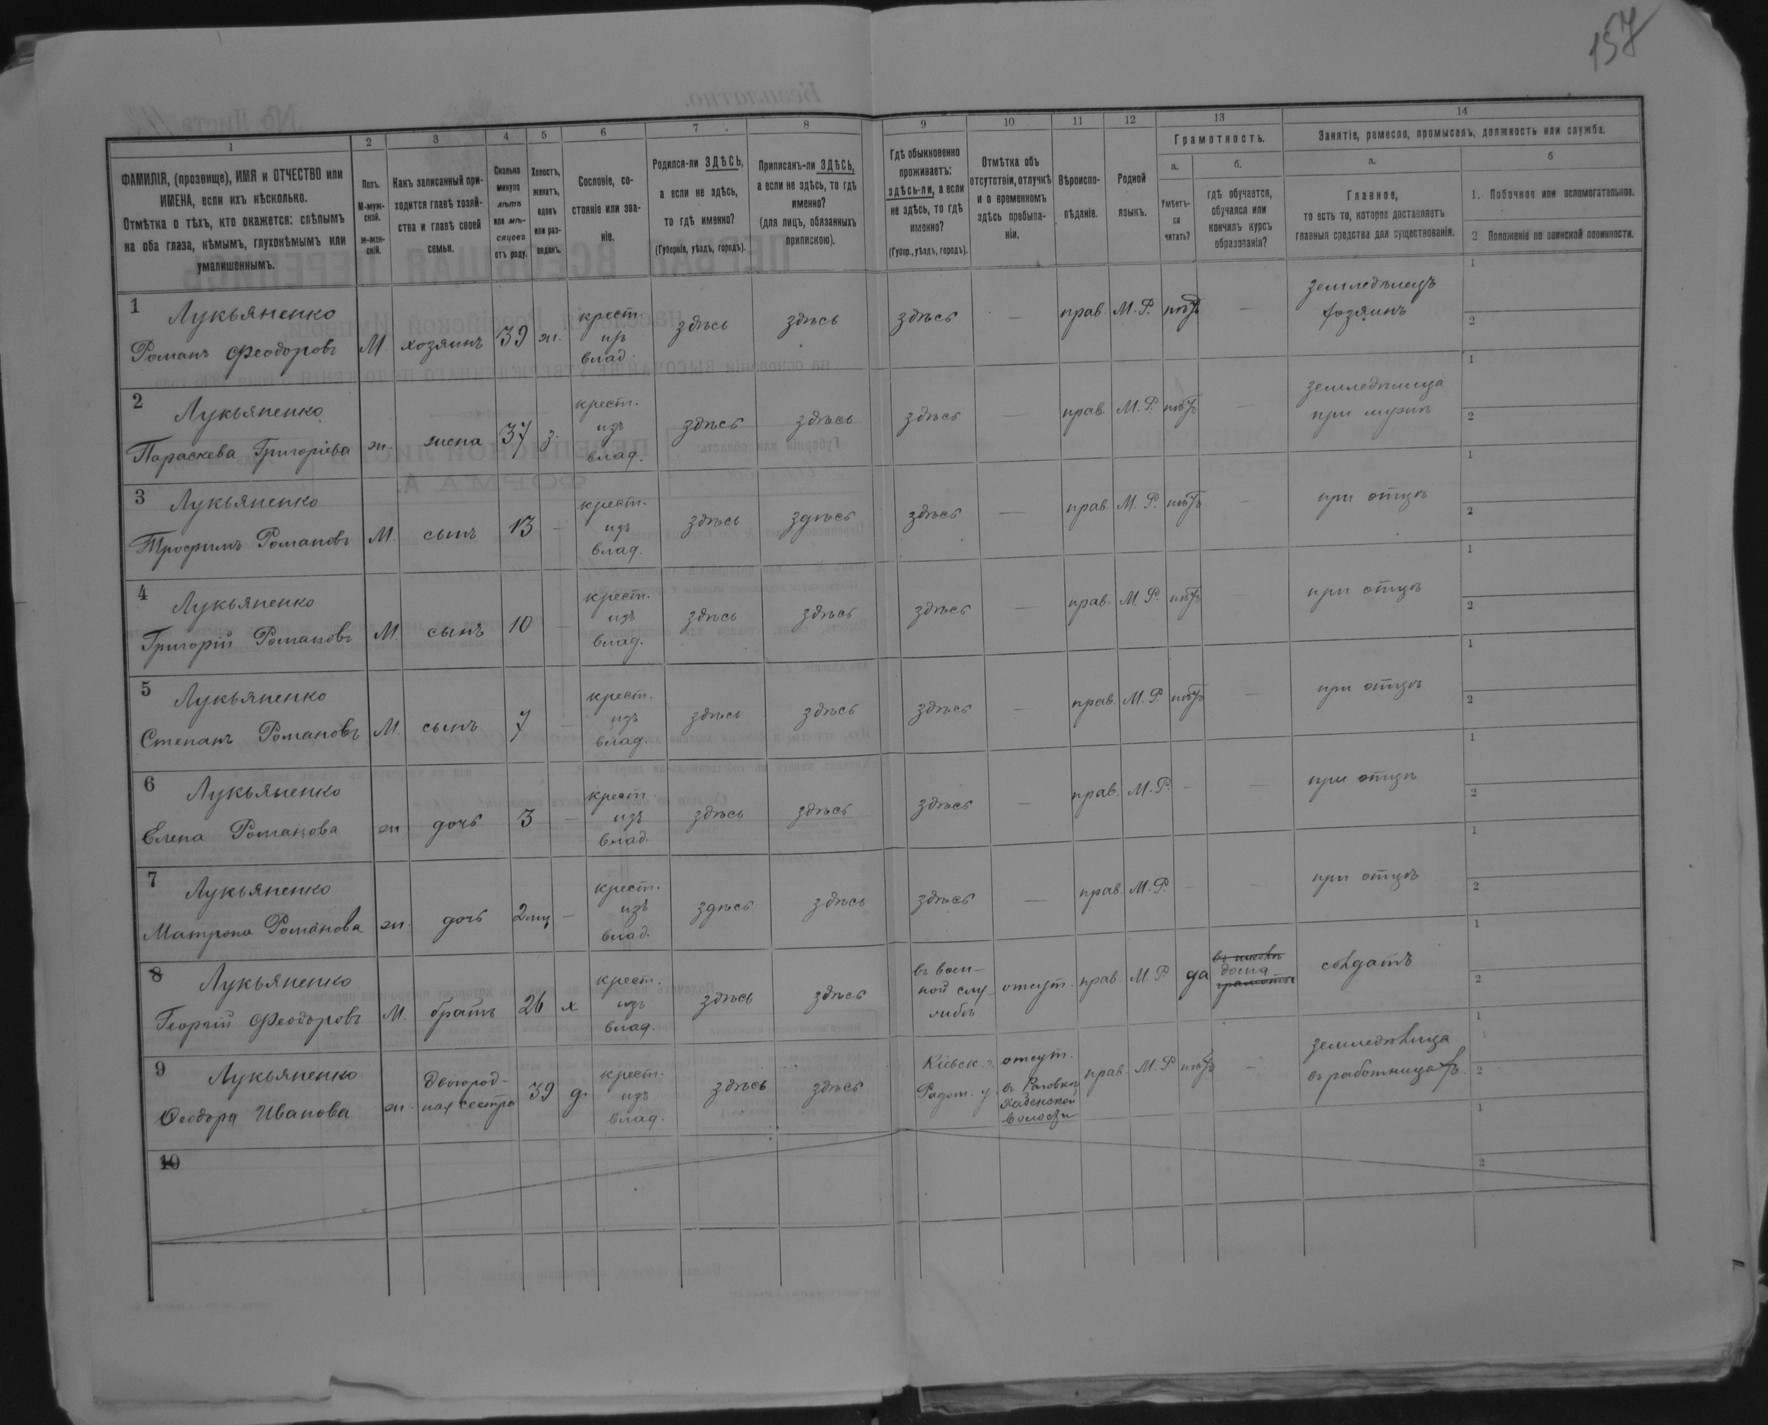 157
1 2 3 4 5 6 7 8 9 10 11 12 13 14
ФАМИЛІЯ, (прозвище), ИМЯ и ОТЧЕСТВО или
ИМЕНА, если ихъ нѣсколько.
Отмѣтка о тѣхъ, кто окажется: слѣпымъ
на оба глаза, нѣмымъ, глухонѣмымъ или
умалишеннымъ.
Полъ.
М-муж-
ской.
ж-жен-
скій.
Какъ записанный при-
ходится главѣ хозяй-
ства и главѣ своей
семьи.
Сколько
минуло
лѣтъ
или мѣ-
сяцевъ
отъ роду.
Холостъ,
женатъ,
вдовъ
или раз-
веденъ.
Сословіе, со-
стояніе или зва-
ніе.
Родился-ли ЗДѢСЬ,
а если не здѣсь,
то гдѣ именно?
(Губернія, уѣздъ, городъ).
Приписанъ-ли ЗДѢСЬ,
а если не здѣсь, то гдѣ
именно?
(для лицъ, обязанныхъ
припискою).
Гдѣ обыкновенно
проживаетъ:
здѣсь-ли, а если
не здѣсь, то гдѣ
именно?
(Губер., уѣздъ, городъ).
Отмѣтка объ
отсутствіи, отлучкѣ
и о временномъ
здѣсь пребыва-
ніи.
Вѣроиспо-
вѣданіе.
Родной
языкъ.
Грамотность.
а.
Умѣетъ-
ли
читать?
б.
гдѣ обучается,
обучался или
кончилъ курсъ
образованія?
Занятіе, ремесло, промыселъ, должность или служба.
а.
Главное,
то есть то, которое доставляетъ
главныя средства для существованія.
б
1. Побочное или вспомогательное.
2 Положеніе по воинской повинности.
1 Лукьяненко
Романъ Феодоровъ М. хозяинъ 39 ж. крест. изъ влад. здѣсь здѣсь здѣсь — прав. М.Р. нѣтъ — земледѣлецъ хозяинъ 1 2
2 Лукьяненко
Параскева Григоріева ж. жена 37 з. крест. изъ влад. здѣсь здѣсь здѣсь — прав. М.Р. нѣтъ — земледѣлица при мужѣ 1 2
3 Лукьяненко
Трофимъ Романовъ М. сынъ 13 — крест. изъ влад. здѣсь здѣсь здѣсь — прав. М.Р. нѣтъ — при отцѣ 1 2
4 Лукьяненко
Григорій Романовъ М. сынъ 10 — крест. изъ влад. здѣсь здѣсь здѣсь — прав. М.Р. нѣтъ — при отцѣ 1 2
5 Лукьяненко
Степанъ Романовъ М. сынъ 7 — крест. изъ влад. здѣсь здѣсь здѣсь — прав. М.Р. нѣтъ — при отцѣ 1 2
6 Лукьяненко
Елена Романова ж дочь 3 — крест. изъ влад. здѣсь здѣсь здѣсь — прав. М.Р. — — при отцѣ 1 2
7 Лукьяненко
Матрона Романова ж. дочь 2 мц — крест. изъ влад. здѣсь здѣсь здѣсь — прав. М.Р. — — при отцѣ 1 2
8 Лукьяненко
Георгій Феодоровъ М. братъ 26 х крест. изъ влад. здѣсь здѣсь въ воен-ной службѣ отсут. прав. М.Р. да дома солдатъ 1 2
9 Лукьяненко
Феодора Иванова ж. Двоюрод-ная сестра 39 д. крест. изъ влад. здѣсь здѣсь Кіевск. г. Радом. у. отсут. въ волости прав. М.Р нѣтъ — земледѣлица работница 1 2
10 1 2